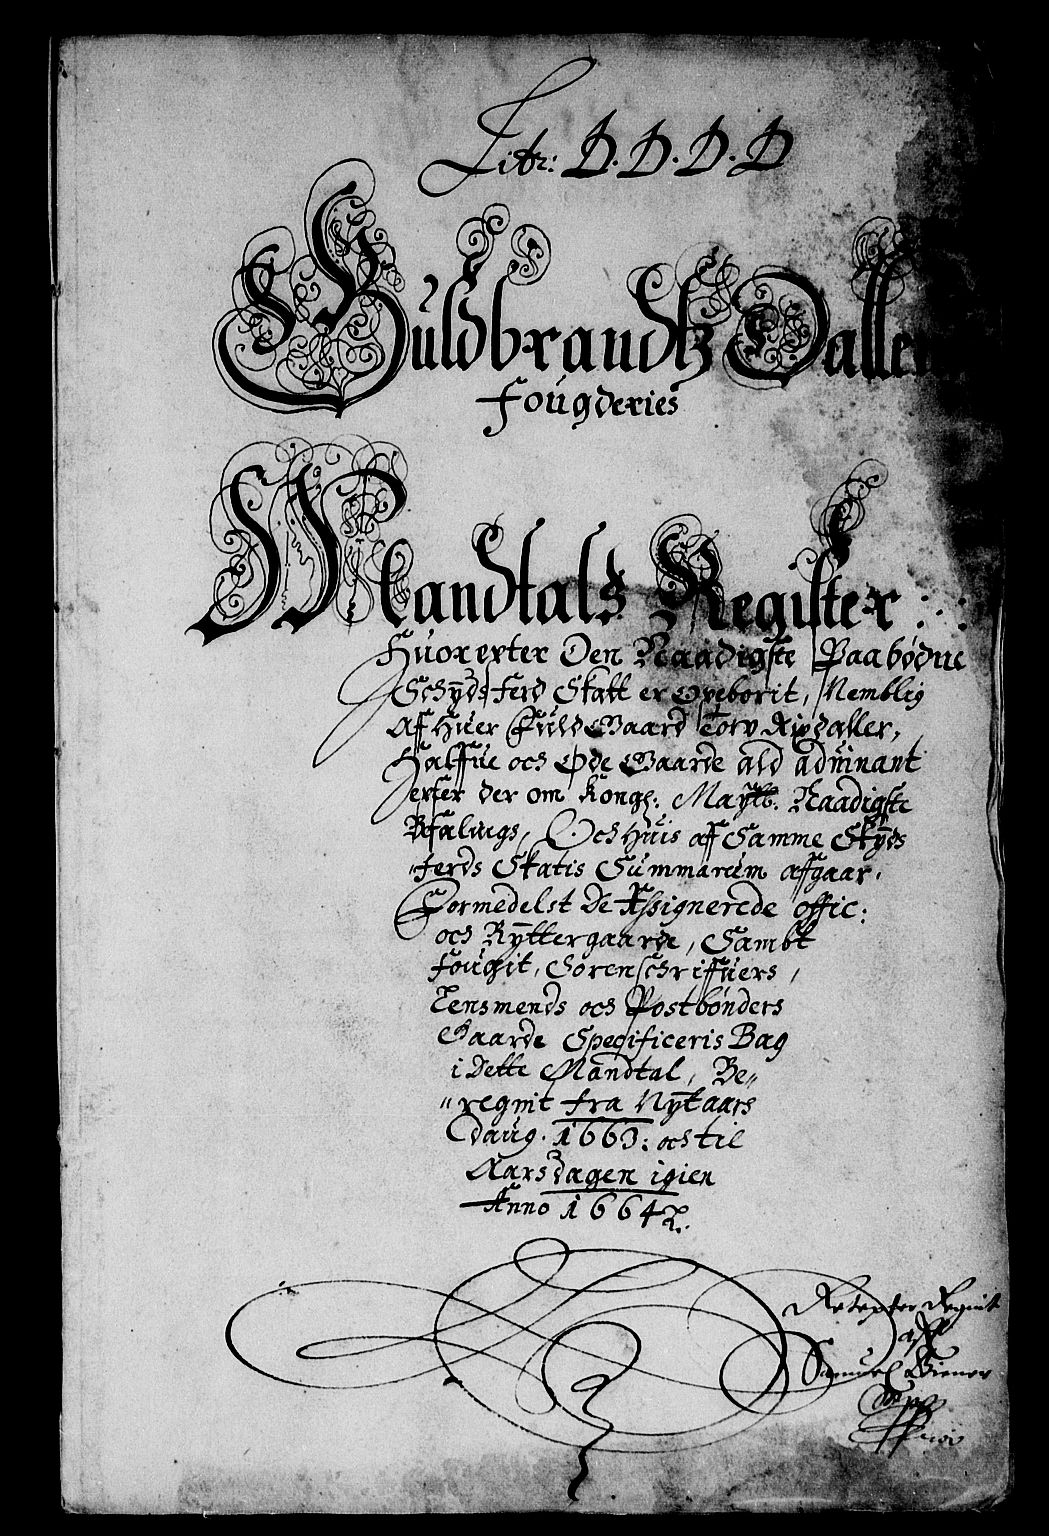 Litr: D. D. D. D
Guldbrandtz Dallens
fougderies
Mandtals Register :.:
Huorexter Den Naadigste Paabødne
Schÿdsferd Skatt er opeborit, Nemblig
Aff Huer Fuld Gaard Toto Rixdaller,
Halffue och Øde Gaarde ald adminant
exfter der om Kongl: Maÿtts. Naadigste
Befalings, Och Huis aff Samme Skÿds
ferds Skatis Summarum affgaar,
Formedelst De Assignerede offic:
och Rÿttergaarde, Sambt
fougit, Sorenschriffuers,
Lensmends och Postbønders
Gaarde Specificeris Bag
i Dette Mandtal, Be„
„regnit fra Nÿtaars
daug. 1663: och til
Aarsdagen igien
Anno 1664
Regnit
aff
Samuel Wiener